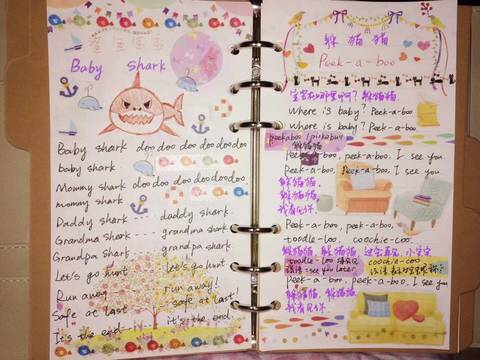 Baby Shark
Baby shark doo doo doo doo doo doo
baby shark.
Mommy shark doo doo doo doo doo doo
mommy shark
Daddy shark - - - daddy shark.
Grandma Shark - - - grandma shark
Grandpa Shark - - - grandpa shark
Let's go hunt - - - let's go hunt
Run away - - - run away!
Safe at last - - - safe at last!
It's the end - - - it's the end
躲猫猫
Peek-a-boo
宝宝在哪里呀? 躲猫猫.
Where is baby? Peek-a-boo
Where is baby? Peek-a-boo
peekaboo
躲猫猫
Peek-a-boo, peek-a-boo, I see you
Peek-a-boo, Peek-a-boo, I see you
躲猫猫,
躲猫猫,
我看见你.
Peek-a-boo, peek-a-boo,
toodle-loo, coochie-coo.
躲猫猫, 躲猫猫, 小宝宝
toodle-loo coochie-coo
=see you later
Peek-a-boo, peek-a-boo, I see you
躲猫猫, 躲猫猫,
我看见你